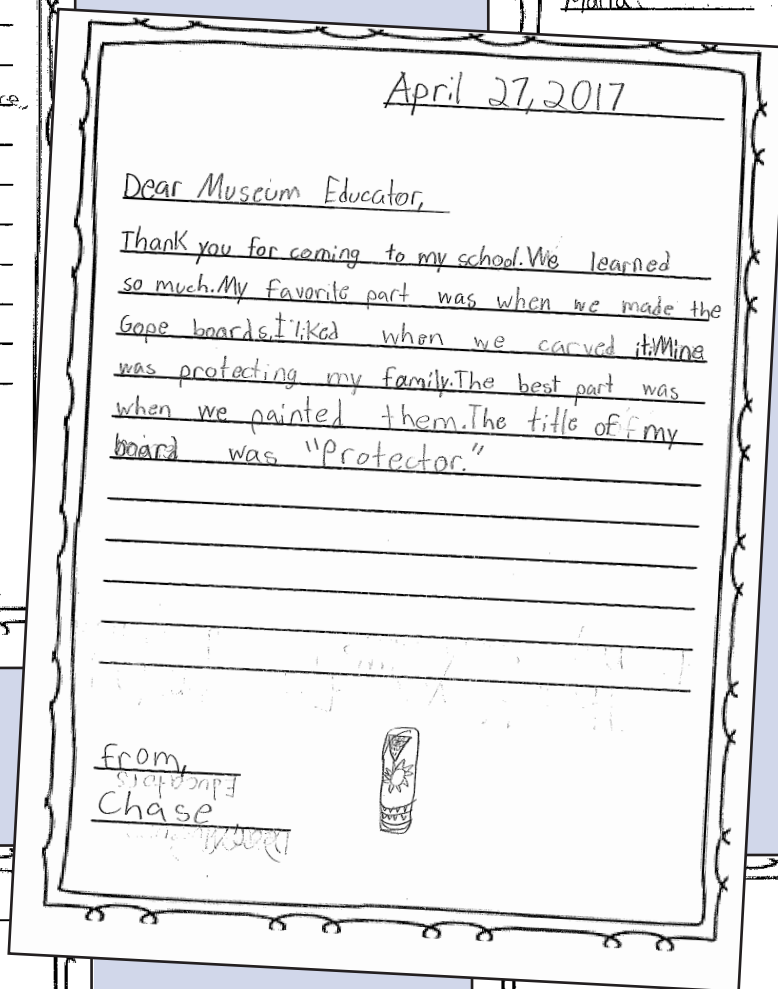 Maria
April 27, 2017
Dear Museum Educator,
Thank you for coming to my school. We learned
so much. My favorite part was when we made the
Gope boards. I liked when we carved it. Mine
was protecting my family. The best part was
when we painted them. The title of my
board was "Protector."
from,
Chase